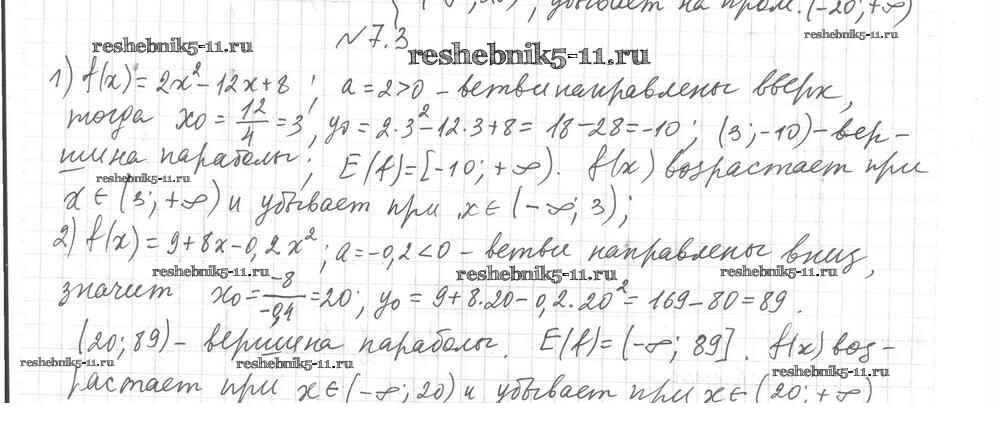 убывает на пром. (-20; +∞)
reshebnik5-11.ru
reshebnik5-11.ru
№7.3
reshebnik5-11.ru
1) f(x) = 2x² - 12x + 8 ; a = 2 > 0 – ветви направлены вверх,
тогда x₀ = 12/4 = 3 ; y₀ = 2·3² - 12·3 + 8 = 18 - 28 = -10 ; (3; -10) – вер-
шина параболы ; E(f) = [-10; +∞). f(x) возрастает при
reshebnik5-11.ru
x ∈ (3; +∞) и убывает при x ∈ (-∞; 3) ;
2) f(x) = 9 + 8x - 0,2x² ; a = -0,2 < 0 – ветви направлены вниз,
reshebnik5-11.ru reshebnik5-11.ru reshebnik5-11.ru
значит x₀ = -8/-0,4 = 20 ; y₀ = 9 + 8·20 - 0,2·20² = 169 - 80 = 89.
(20; 89) – вершина параболы. E(f) = (-∞; 89]. f(x) воз-
reshebnik5-11.ru reshebnik5-11.ru reshebnik5-11.ru
растает при x ∈ (-∞; 20) и убывает при x ∈ (20; +∞)